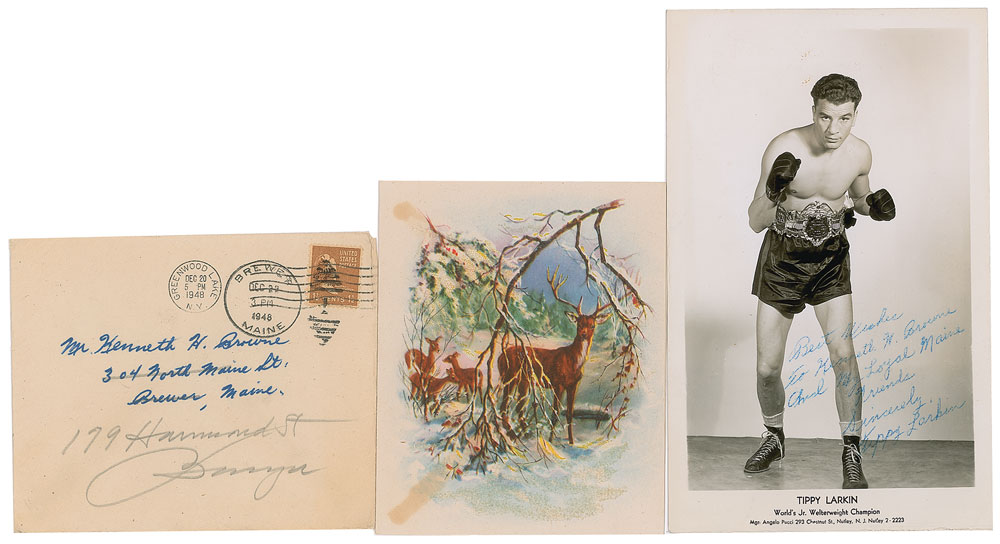 GREENWOOD LAKE
DEC 20
5 PM
1948
N.Y.
BREWER
DEC 22
1 PM
1948
MAINE
UNITED
STATES
Mr. Kenneth H. Browne
304 North Maine St.
Brewer, Maine.
179 Hammond St
Best Wishes
To Kenneth H. Browne
And My Loyal Maine
Friends
Sincerely,
Tippy Larkin
TIPPY LARKIN
World's Jr. Welterweight Champion
Mgr. Angelo Pucci 293 Chestnut St., Nutley, N. J. Nutley 2-2223